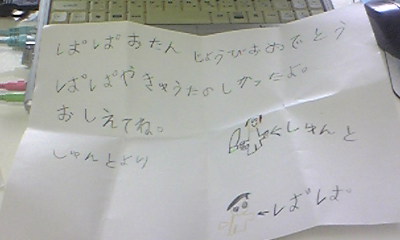 ぱぱおたん じょうびおめでとう
ぱぱやきゅうたのしかったよ。
おしえてね。
しゅんとより
←しゅんと
←ぱぱ